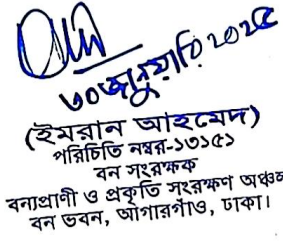 ৩০ জানুয়ারি ২০২৫
(ইমরান আহমেদ)
পরিচিতি নম্বর-১৩১৫১
বন সংরক্ষক
বন্যপ্রাণী ও প্রকৃতি সংরক্ষণ অঞ্চল
বন ভবন, আগারগাঁও, ঢাকা।